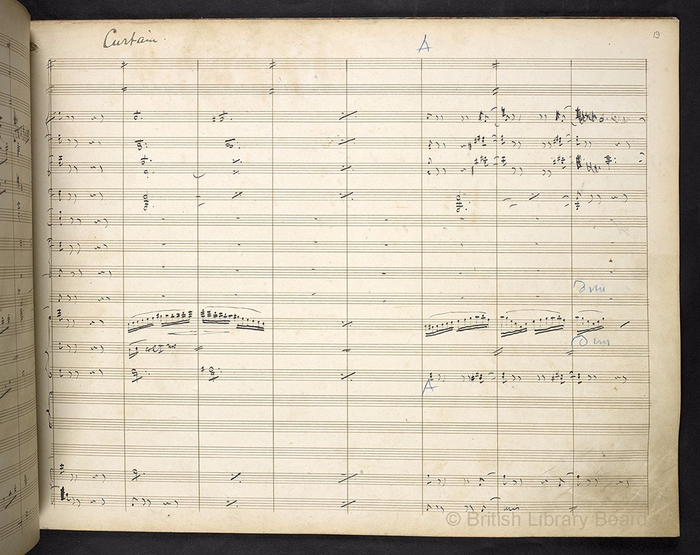 Curtain.
A
13
dim
dim
A
© British Library Board